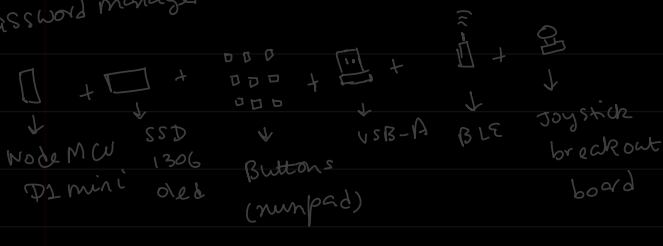 Password manager
+ + + + +
Node MCU
D1 mini
SSD
1306
oled
Buttons
(numpad)
USB-A
BLE
Joystick
breakout
board